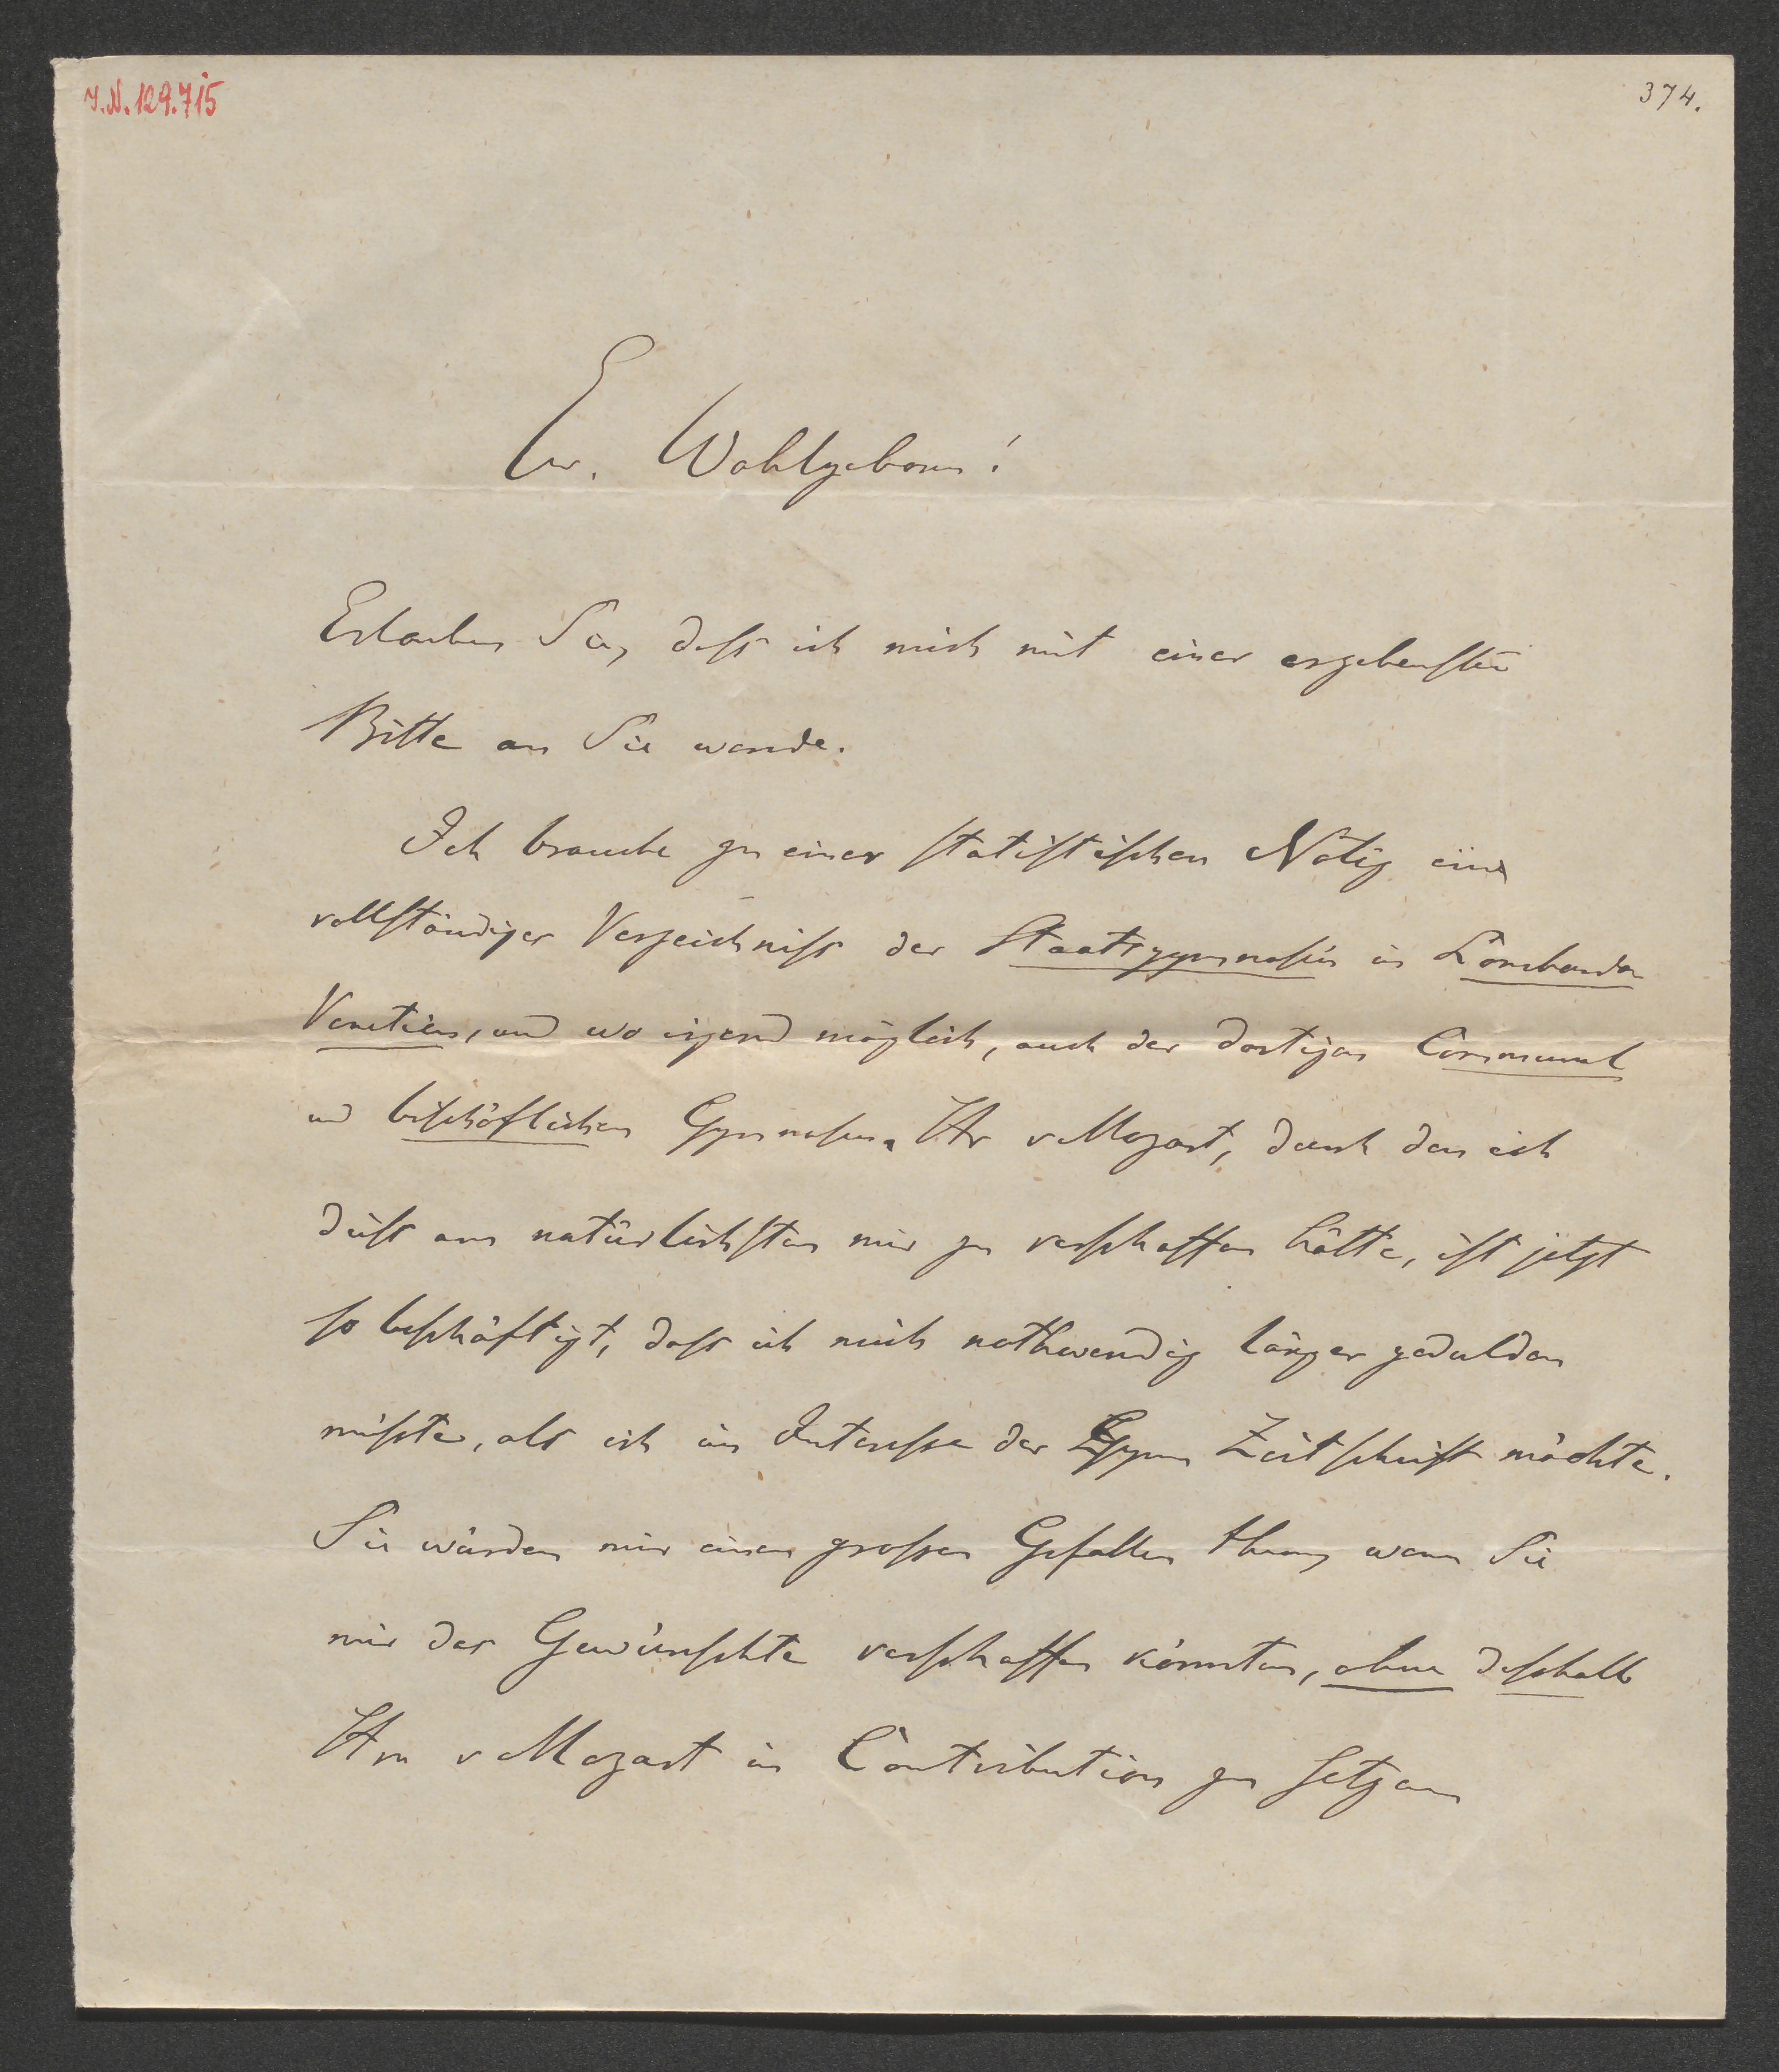 I.N. 129.715
374.
Ew. Wohlgeboren!
Erlauben Sie, daß ich mich mit einer ergebensten
Bitte an Sie wende.
Ich brauche zu einer statistischen Notiz ein
vollständiges Verzeichniß der Staatsgymnasien in Lombardo
Venetien, und wo irgend möglich, auch der dortigen Communal
und bischöflichen Gymnasien. Hr v Mozart, durch den ich
dieß am natürlichsten mir zu verschaffen hätte, ist jetzt
so beschäftigt, daß ich mich nothwendig länger gedulden
müßte, als ich im Interesse der Gymn Zeitschrift möchte.
Sie würden mir einen großen Gefallen thun, wenn Sie
mir das Gewünschte verschaffen könnten, ohne deßhalb
Hrn v Mozart in Contribution zu setzen